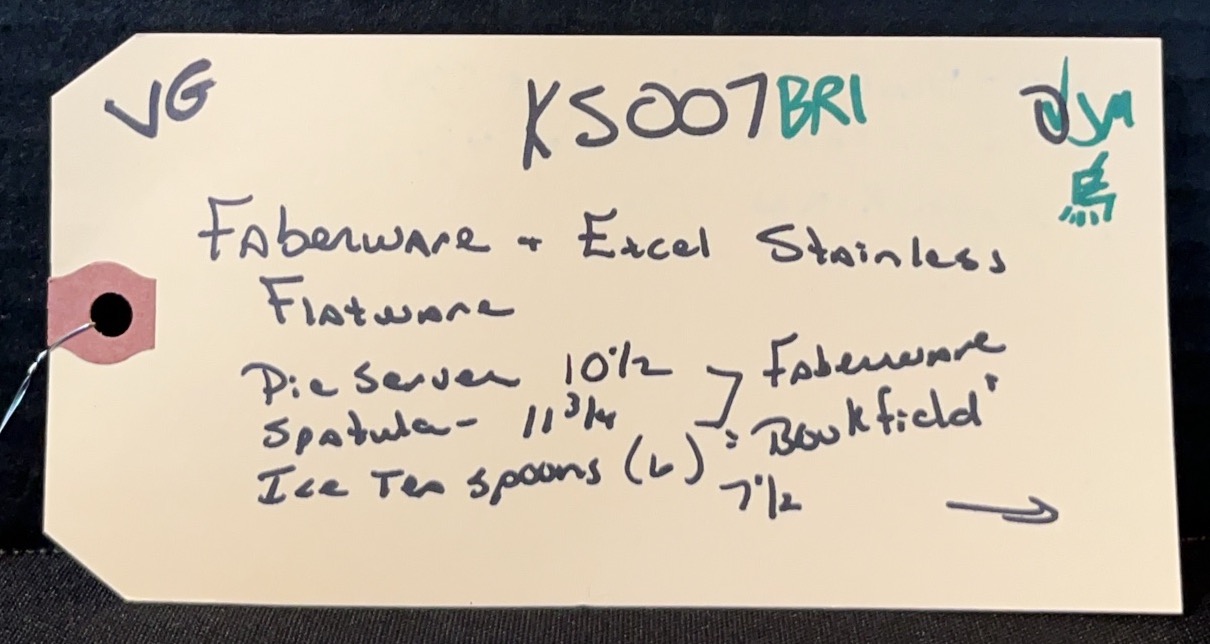 VG KS007BRI
Faberware + Excel Stainless
Flatware
Pie Server 10 1/2 Faberware
Spatula - 11 3/4
Ice Tea spoons (6) 7 1/2
→